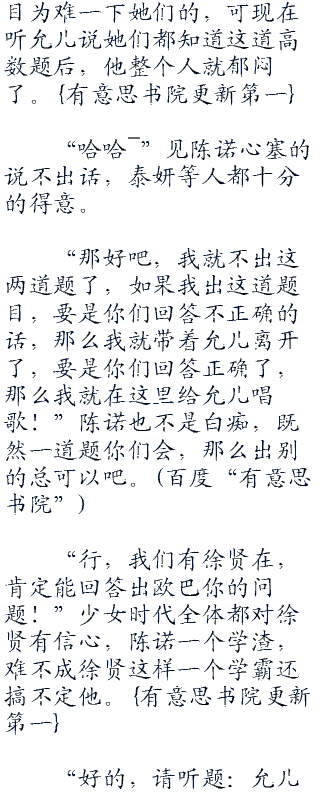 目为难一下她们的，可现在
听允儿说她们都知道这道高
数题后，他整个人就郁闷
了。{有意思书院更新第一}
“哈哈~”见陈诺心塞的
说不出话，泰妍等人都十分
的得意。
“那好吧，我就不出这
两道题了，如果我出这道题
目，要是你们回答不正确的
话，那么我就带着允儿离开
了，要是你们回答正确了，
那么我就在这里给允儿唱
歌！”陈诺也不是白痴，既
然一道题你们会，那么出别
的总可以吧。(百度“有意思
书院”)
“行，我们有徐贤在，
肯定能回答出欧巴你的问
题！”少女时代全体都对徐
贤有信心，陈诺一个学渣，
难不成徐贤这样一个学霸还
搞不定他。{有意思书院更新
第一}
“好的，请听题：允儿